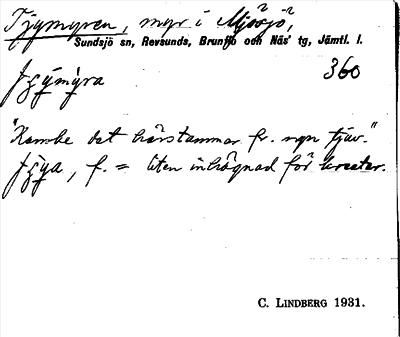 Tjymyren, myr i Mjösjö,
Sundsjö sn, Revsunds, Brunflo och Näs' tg, Jämtl. l.
360
"Kanske det härstammar fr. myn tjäv."
f. = liten inhägnad för kreatur.
C. LINDBERG 1931.